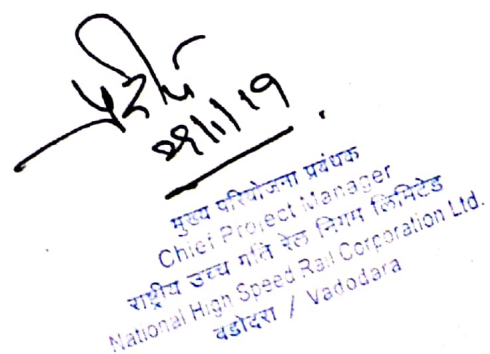 प्रदीप
29/1/19
मुख्य परियोजना प्रबंधक
Chief Project Manager
राष्ट्रीय उच्च गति रेल निगम लिमिटेड
National High Speed Rail Corporation Ltd.
वडोदरा / Vadodara